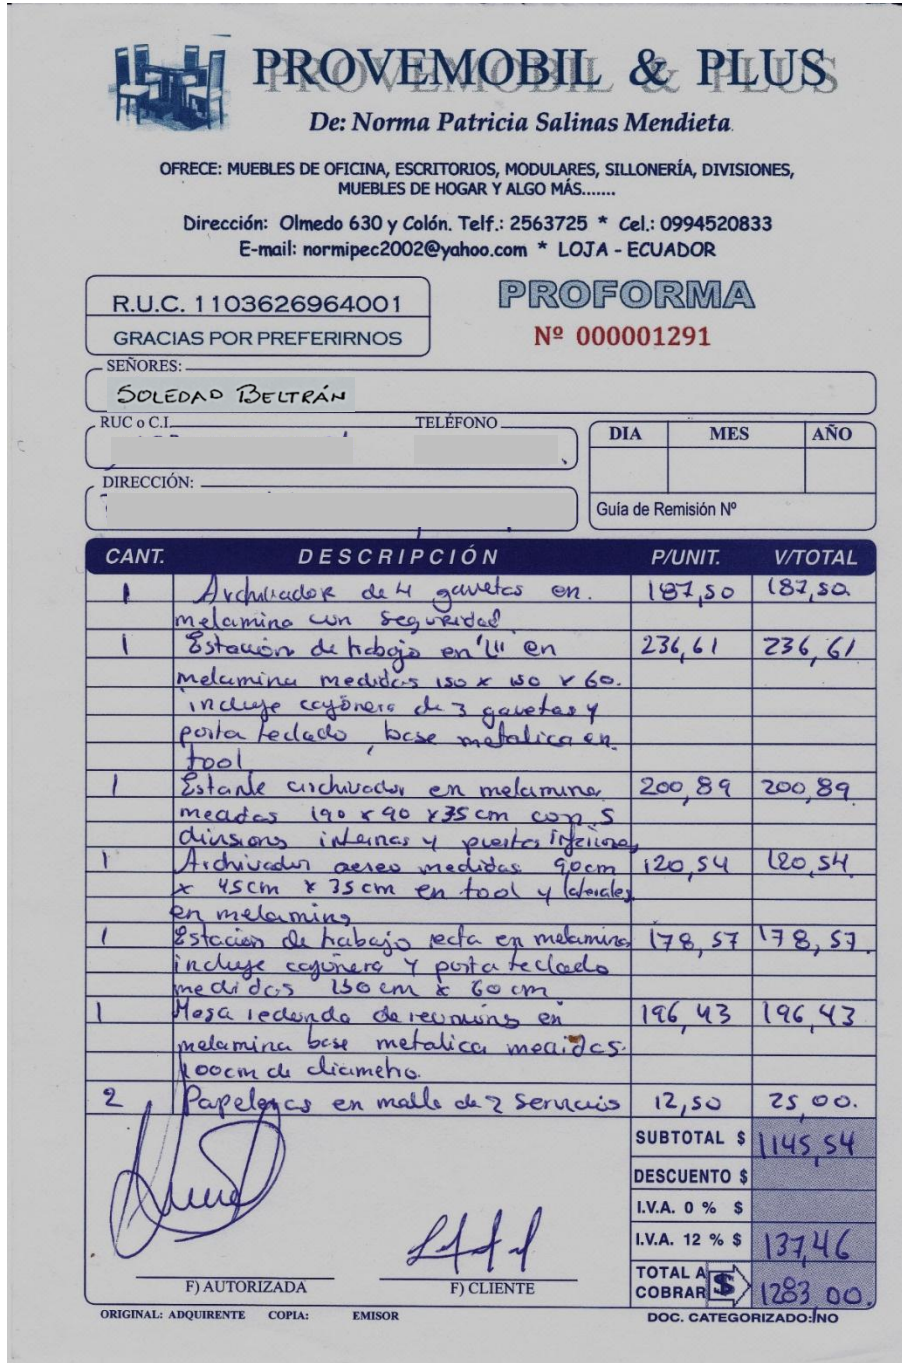 PROVEMOBIL & PLUS
De: Norma Patricia Salinas Mendieta.
OFRECE: MUEBLES DE OFICINA, ESCRITORIOS, MODULARES, SILLONERÍA, DIVISIONES,
MUEBLES DE HOGAR Y ALGO MÁS.......
Dirección: Olmedo 630 y Colón. Telf.: 2563725 * Cel.: 0994520833
E-mail: normipec2002@yahoo.com * LOJA - ECUADOR
R.U.C. 1103626964001
GRACIAS POR PREFERIRNOS
PROFORMA
Nº 000001291
SEÑORES:
SOLEDAD BELTRÁN
RUC o C.I. TELÉFONO
DIRECCIÓN:
DIA MES AÑO
Guía de Remisión Nº
CANT. DESCRIPCIÓN P/UNIT. V/TOTAL
1 Archivador de 4 gavetas en 187,50 187,50
melamina con seguridad
1 Estación de trabajo en "L" en 236,61 236,61
melamina medidas 150 x 150 x 60.
incluye cajonera de 3 gavetas y
porta teclado, base metalica en
tool
1 Estante archivador en melamina 200,89 200,89
medidas 190 x 90 x 35 cm con 5
divisions internas y puertas inferiores
1 Archivador aereo medidas 90cm 120,54 120,54
x 45cm x 35cm en tool y laterales
en melamina
1 Estación de trabajo recta en melamina 178,57 178,57
incluye cajonera y porta teclado
medidas 150 cm x 60 cm
1 Mesa redonda de reunions en 196,43 196,43
melamina base metalica medidas
100cm de diametro.
2 Papeleras en malla de 2 servicios 12,50 25,00.
SUBTOTAL $ 1145,54
DESCUENTO $
I.V.A. 0 % $
I.V.A. 12 % $ 137,46
TOTAL A COBRAR $ 1283,00.
F) AUTORIZADA F) CLIENTE
ORIGINAL: ADQUIRENTE COPIA: EMISOR DOC. CATEGORIZADO: NO